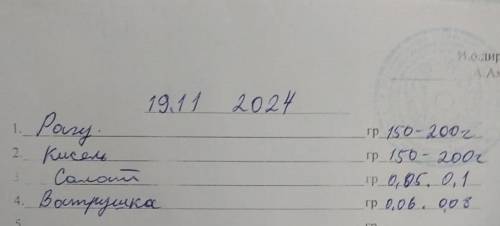 И.о.дир
А.Ах
19.11 2024
1. Рагу. гр 150-200г
2. Кисель гр 150-200г
3 Салат гр 0,05. 0,1
4. Ватрушка гр 0,06. 0,08
5 гр